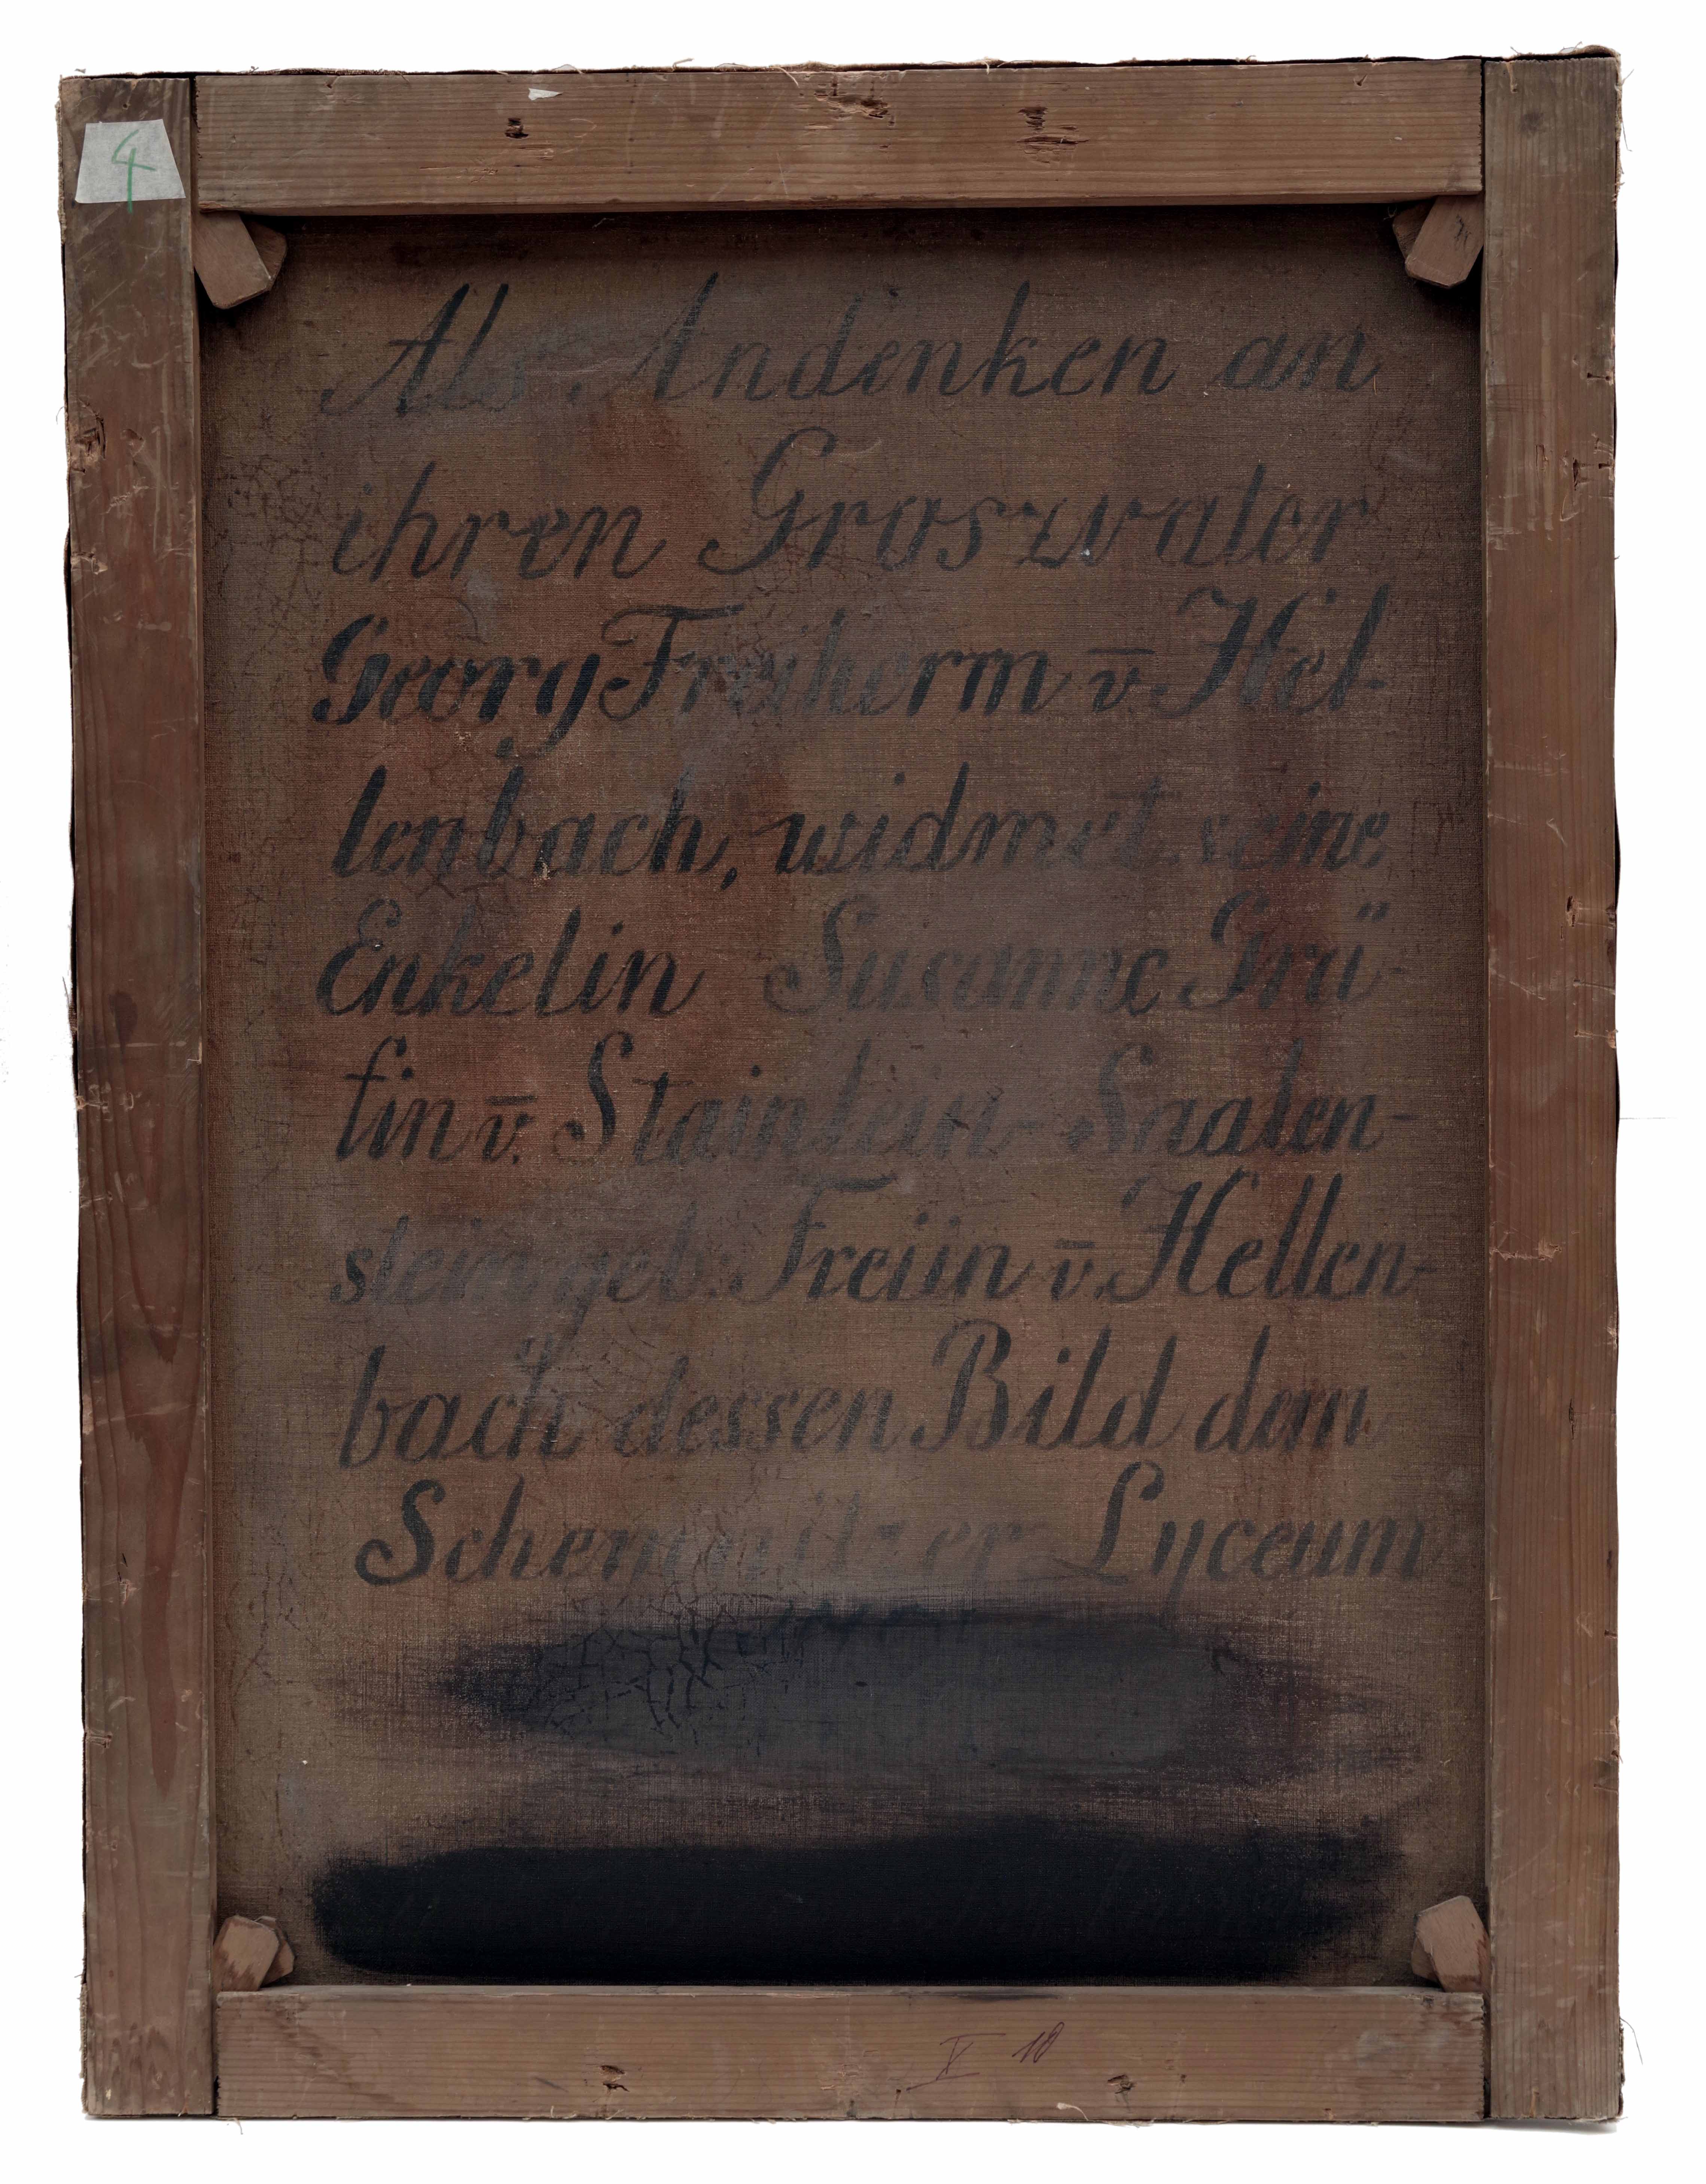 4
Als Andenken an
ihren Groszvater
Georg Freiherrn v̄. Hel-
lenbach, widmet seine
Enkelin Susanne Grä-
fin v̄. Stainlein-Saalen-
stein geb. Freiin v̄. Hellen-
bach dessen Bild dem
Schemnitzer Lyceum
V 10